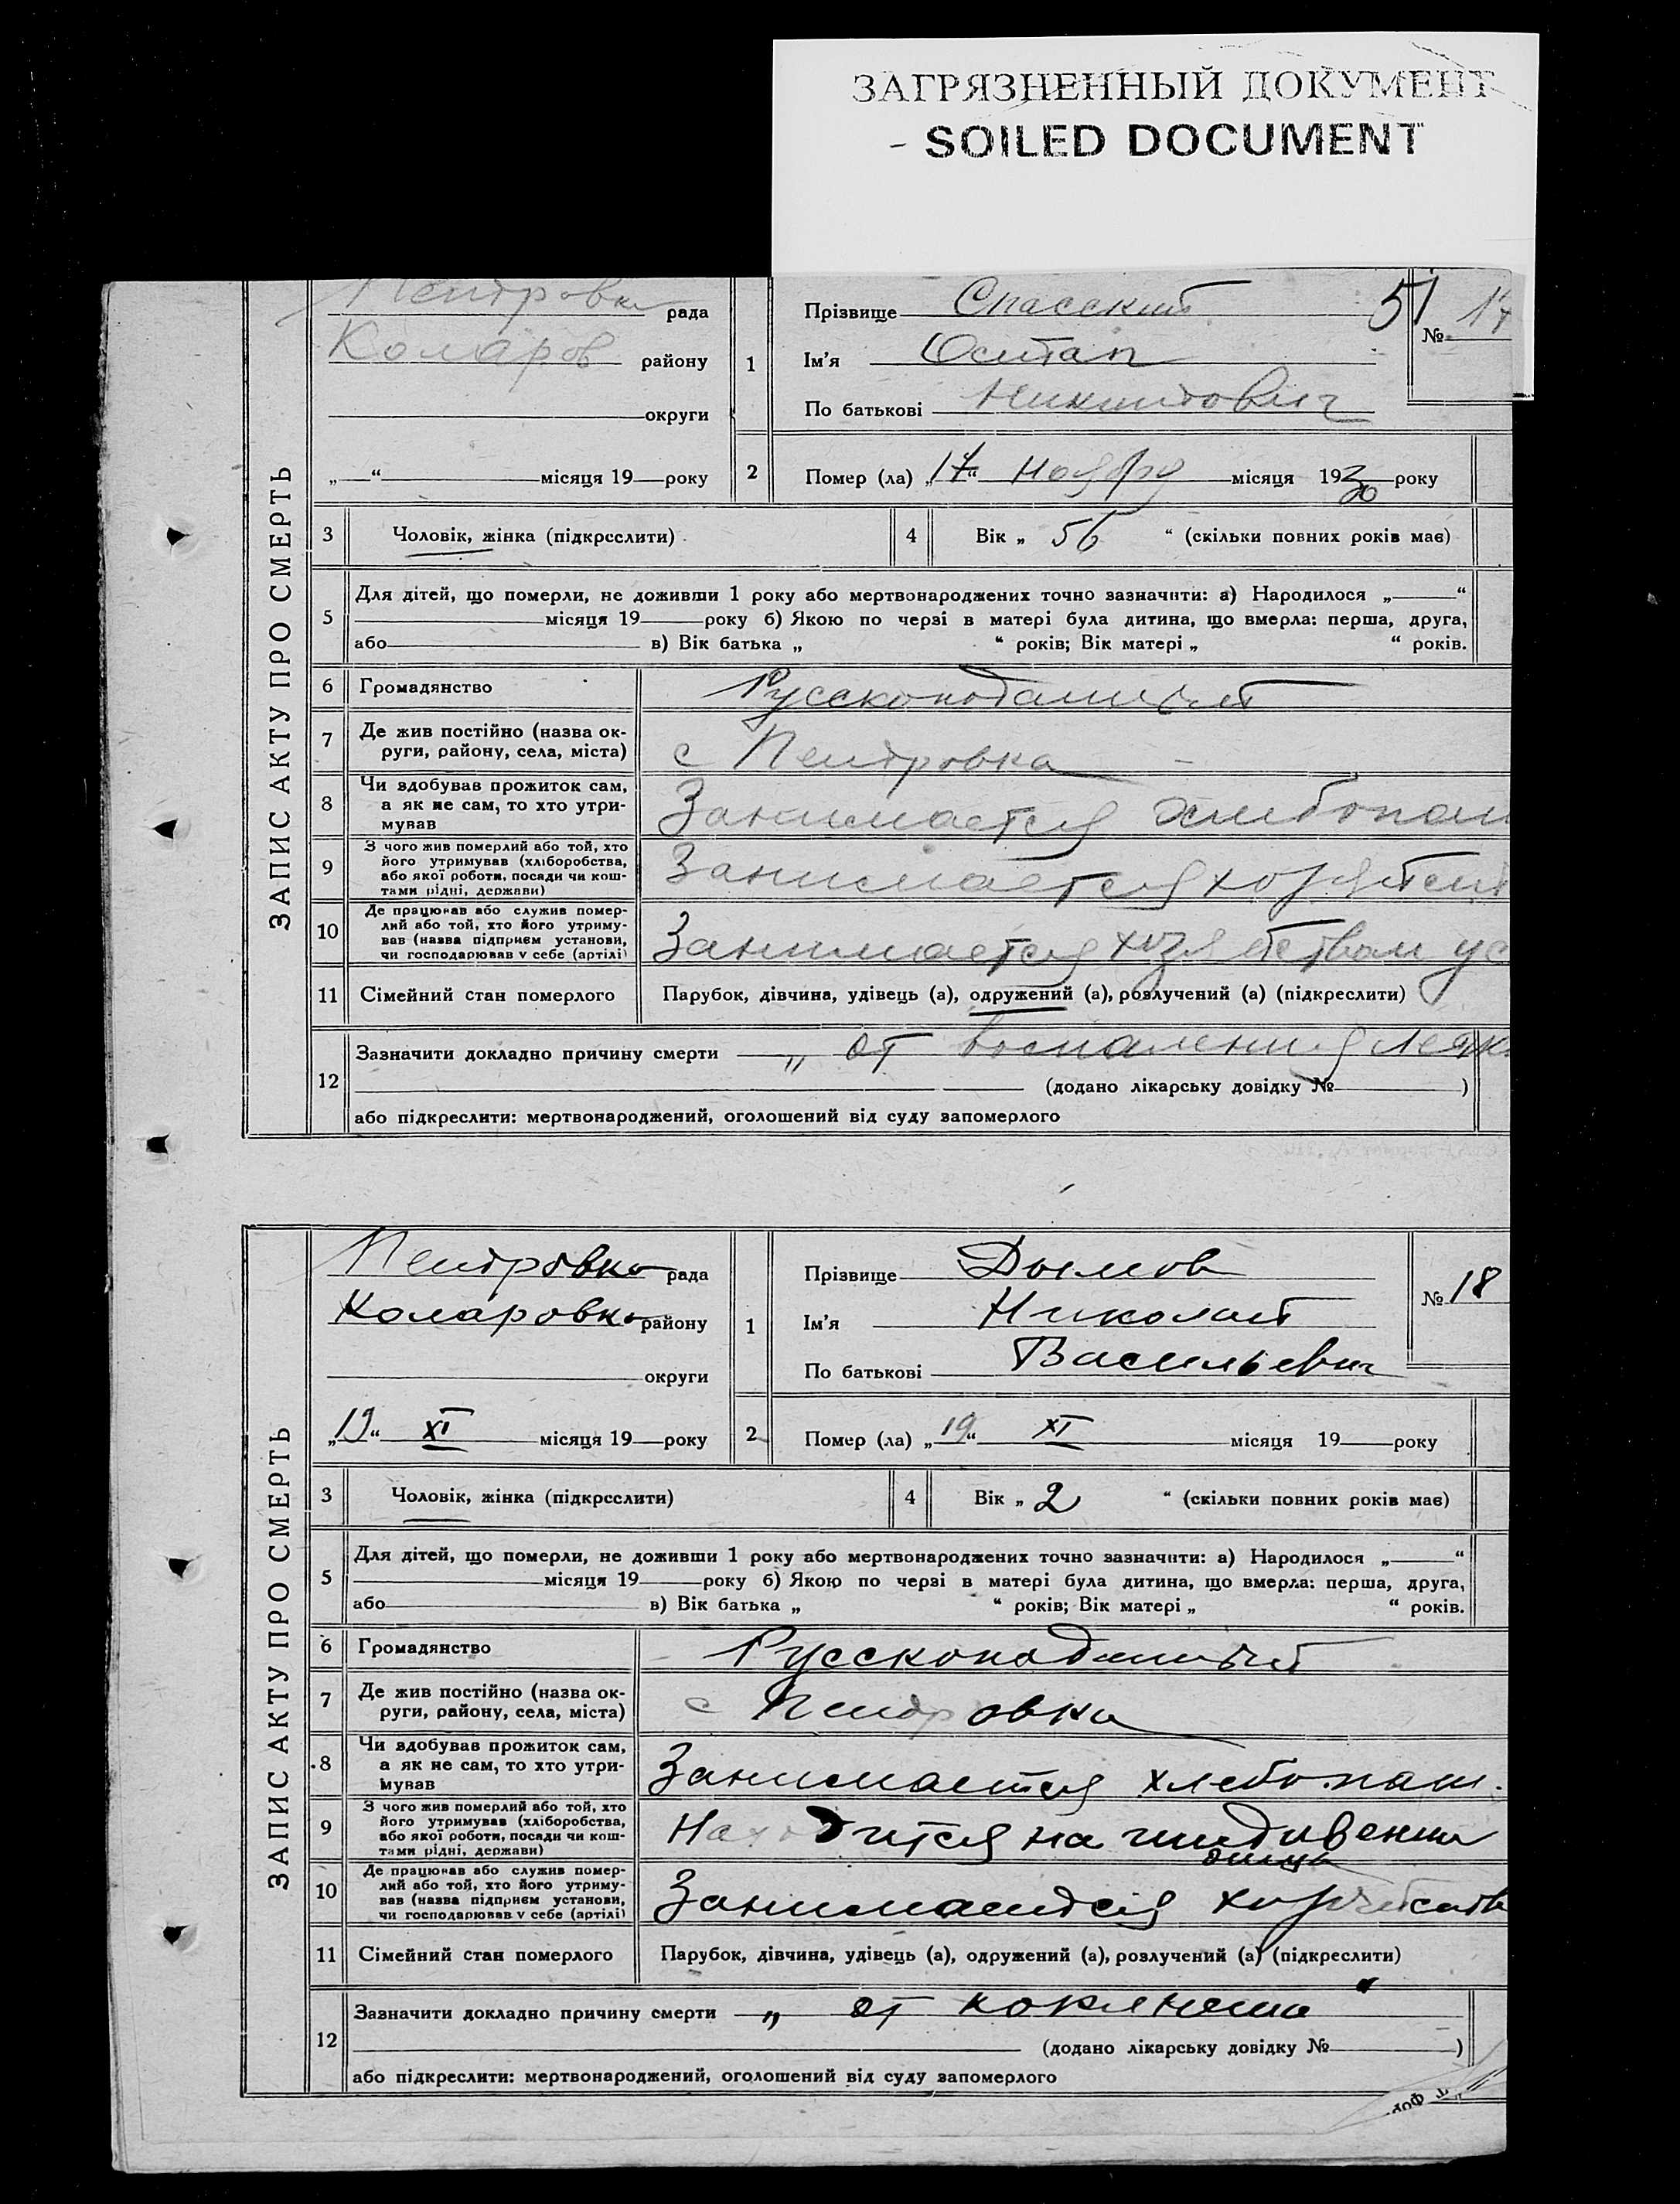 ЗАГРЯЗНЕННЫЙ ДОКУМЕНТ
- SOILED DOCUMENT
ЗАПИС АКТУ ПРО СМЕРТЬ
Петровка рада
Коларов району
округи
„ “ місяця 19 року
1
Прізвище Спасский
Ім'я Остап
По батькові Никитович
51
№ 17
2
Помер (ла) „17“ Ноября місяця 1930 року
3 Чоловік, жінка (підкреслити)
4 Вік „ 56 “ (скільки повних років має)
5 Для дітей, що померли, не доживши 1 року або мертвонароджених точно зазначити: а) Народилося „ “
місяця 19 року б) Якою по черзі в матері була дитина, що вмерла: перша, друга,
або в) Вік батька „ “ років; Вік матері „ “ років.
6 Громадянство Русскоподанный
7 Де жив постійно (назва ок-
руги, району, села, міста) с Петровка
8 Чи здобував прожиток сам,
а як не сам, то хто утри-
мував Занимается хлебопаш
9 З чого жив померлий або той, хто
його утримував (хліборобства,
або якої роботи, посади чи кош-
тами рідні, держави) Занимается хозяйст
10 Де працював або служив помер-
лий або той, хто його утриму-
вав (назва підприєм установи,
чи господарював у себе (артілі) Занимается хозяйством у с
11 Сімейний стан померлого Парубок, дівчина, удівець (а), одружений (а), розлучений (а) (підкреслити)
12 Зазначити докладно причину смерти „ от воспаления легк
(додано лікарську довідку № )
або підкреслити: мертвонароджений, оголошений від суду запомерлого
ЗАПИС АКТУ ПРО СМЕРТЬ
Петровка рада
Коларовка району
округи
„19“ XI місяця 19 року
1
Прізвище Дымов
Ім'я Николай
По батькові Васильевич
№ 18
2
Помер (ла) „19“ XI місяця 19 року
3 Чоловік, жінка (підкреслити)
4 Вік „ 2 “ (скільки повних років має)
5 Для дітей, що померли, не доживши 1 року або мертвонароджених точно зазначити: а) Народилося „ “
місяця 19 року б) Якою по черзі в матері була дитина, що вмерла: перша, друга,
або в) Вік батька „ “ років; Вік матері „ “ років.
6 Громадянство Русскоподанный
7 Де жив постійно (назва ок-
руги, району, села, міста) с Петровка
8 Чи здобував прожиток сам,
а як не сам, то хто утри-
мував Занимается хлебопаш.
9 З чого жив померлий або той, хто
його утримував (хліборобства,
або якої роботи, посади чи кош-
тами рідні, держави) Находится на иждивении
отца
10 Де працював або служив помер-
лий або той, хто його утриму-
вав (назва підприєм установи,
чи господарював у себе (артілі) Занимается хозяйств
11 Сімейний стан померлого Парубок, дівчина, удівець (а), одружений (а), розлучений (а) (підкреслити)
12 Зазначити докладно причину смерти „ от коклюша "
(додано лікарську довідку № )
або підкреслити: мертвонароджений, оголошений від суду запомерлого